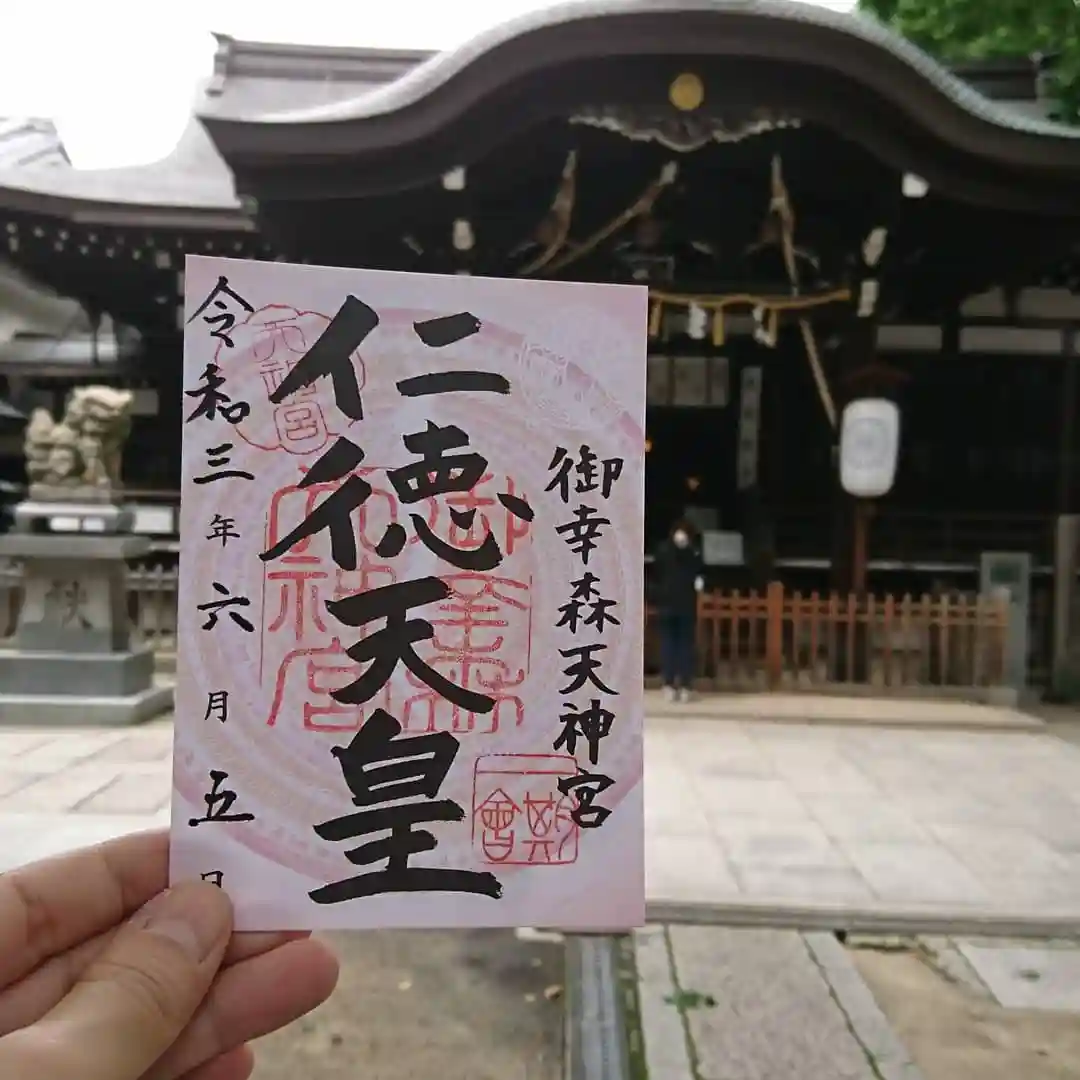 御幸森天神宮
仁徳天皇
令和三年六月五日
天神宮
御幸森
天神宮
一期
会